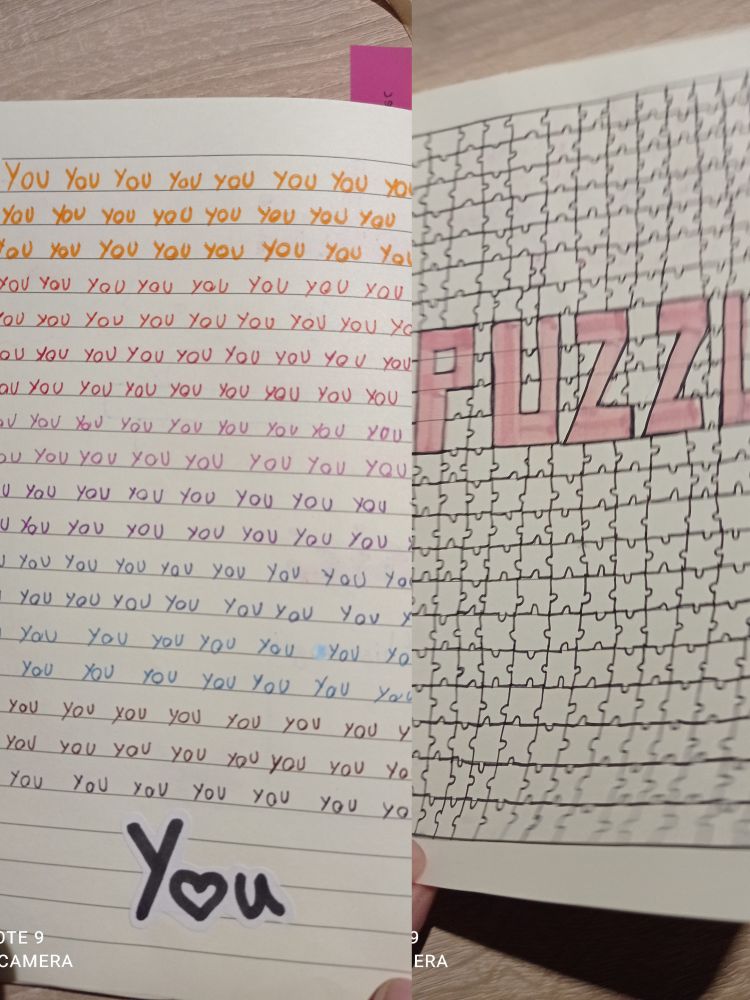 You You You You You You You yo
You You You You You You You You
ou You You You You You You You
You You You You You You You You
ou You You You You You You You Yo
ou You You You You You You You You
ou You You You You You You You You
u You You You You You You You You
ou You You You You You You You
u You You You You You You You
u You You You You You You You
You You You You You You You Yo
You You You You You You You Y
You You You You You You Yo
You You You You You You You
You You You You You You You Y
You You You You You You You Yo
You You You You You You Yo
You
OTE 9
CAMERA
PUZZL
9
ERA